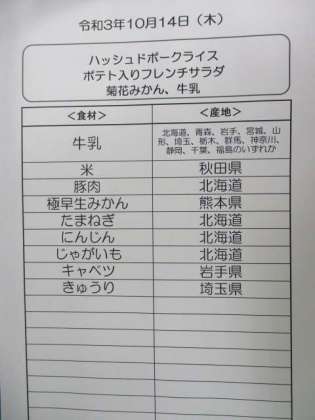 令和3年10月14日（木）
ハッシュドポークライス
ポテト入りフレンチサラダ
菊花みかん、牛乳
＜食材＞ ＜産地＞
牛乳 北海道、青森、岩手、宮城、山
形、埼玉、栃木、群馬、神奈川、
静岡、千葉、福島のいずれか
米 秋田県
豚肉 北海道
極早生みかん 熊本県
たまねぎ 北海道
にんじん 北海道
じゃがいも 北海道
キャベツ 岩手県
きゅうり 埼玉県